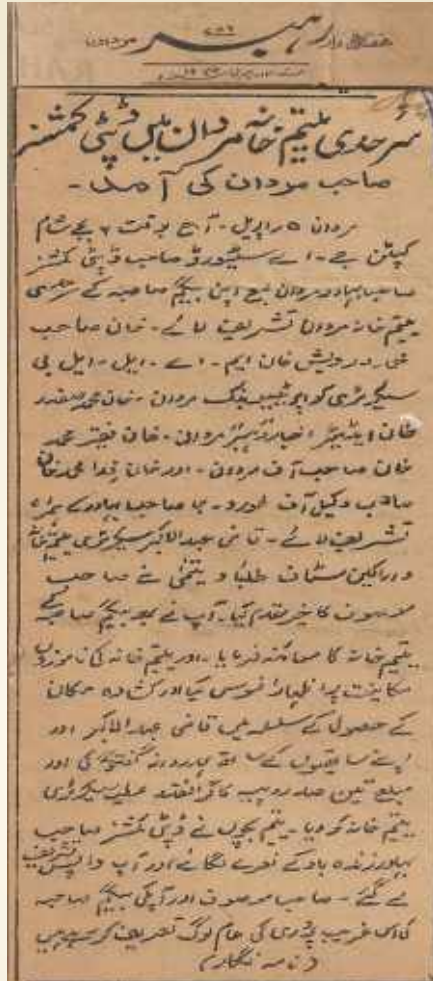 رہبر
مردان
سرحدی یتیم خانہ مردان میں ڈپٹی کمشنر
صاحب مردان کی آمد۔
مردان ۵ اپریل۔ آج بوقت ۷ بجے شام
کیپٹن جے۔ اے سٹیورڈ صاحب ڈپٹی کمشنر
صاحب بہادر مردان مع اپن بیگم صاحبہ کے سرحدی
یتیم خانہ مردان تشریف لائے۔ خان صاحب
درویش خان ایم۔ اے۔ ایل۔ ایل بی
سیکرٹری کواپریٹیو بنک مردان۔ خان محمد صفدر
خان ایڈیٹر اخبار رہبر مردان۔ خان فقیر محمد
خان صاحب آف مردان۔ اور خان فدا محمد خان
صاحب وکیل آف طورو۔ صاحب بہادر کے ہمراہ
تشریف لائے۔ قاضی عبدالاکبر سیکرٹری یتیم خانہ
و اراکین سٹاف طلباء و یتمیٰ نے صاحب
موصوف کا خیر مقدم کیا۔ آپ نے معہ بیگم صاحبہ کے
یتیم خانہ کا معائنہ فرمایا۔ اور یتیم خانہ کی ناموزوں
مکانیت پر اظہار افسوس کیا اور کشادہ مکان
کے حصول کے سلسلہ میں قاضی عبدالاکبر اور
اپنے ساتھیوں کے ساتھ ہمدردانہ گفتگو کی اور
مبلغ تین صد روپیہ کا گرانقدر عطیہ سیکرٹری
یتیم خانہ کو دیا۔ یتیم بچوں نے ڈپٹی کمشنر صاحب
بہادر زندہ باد کے نعرے لگائے اور آپ واپس تشریف
لے گئے۔ صاحب موصوف اور آپکی بیگم صاحبہ
کی اس غریب پروری کی عام لوگ تعریف کر رہے ہیں
(نامہ نگار)